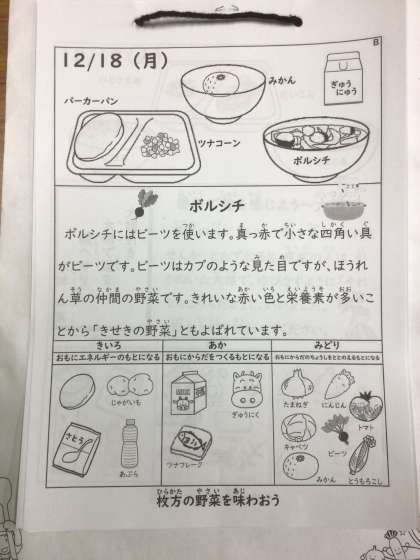 B
12/18（月）
みかん
ぎゅう
にゅう
パーカーパン
ツナコーン
ボルシチ
ボルシチ
ボルシチにはビーツを使います。真っ赤で小さな四角い具
がビーツです。ビーツはカブのような見た目ですが、ほうれ
ん草の仲間の野菜です。きれいな赤い色と栄養素が多いこ
とから「きせきの野菜」ともよばれています。
きいろ
あか
みどり
おもにエネルギーのもとになる
おもにからだをつくるもとになる
おもにからだのちょうしをととのえるもとになる
じゃがいも
ぎゅうにく
たまねぎ
にんじん
トマト
さとう
あぶら
ツナフレーク
キャベツ
ビーツ
みかん
とうもろこし
枚方の野菜を味わおう